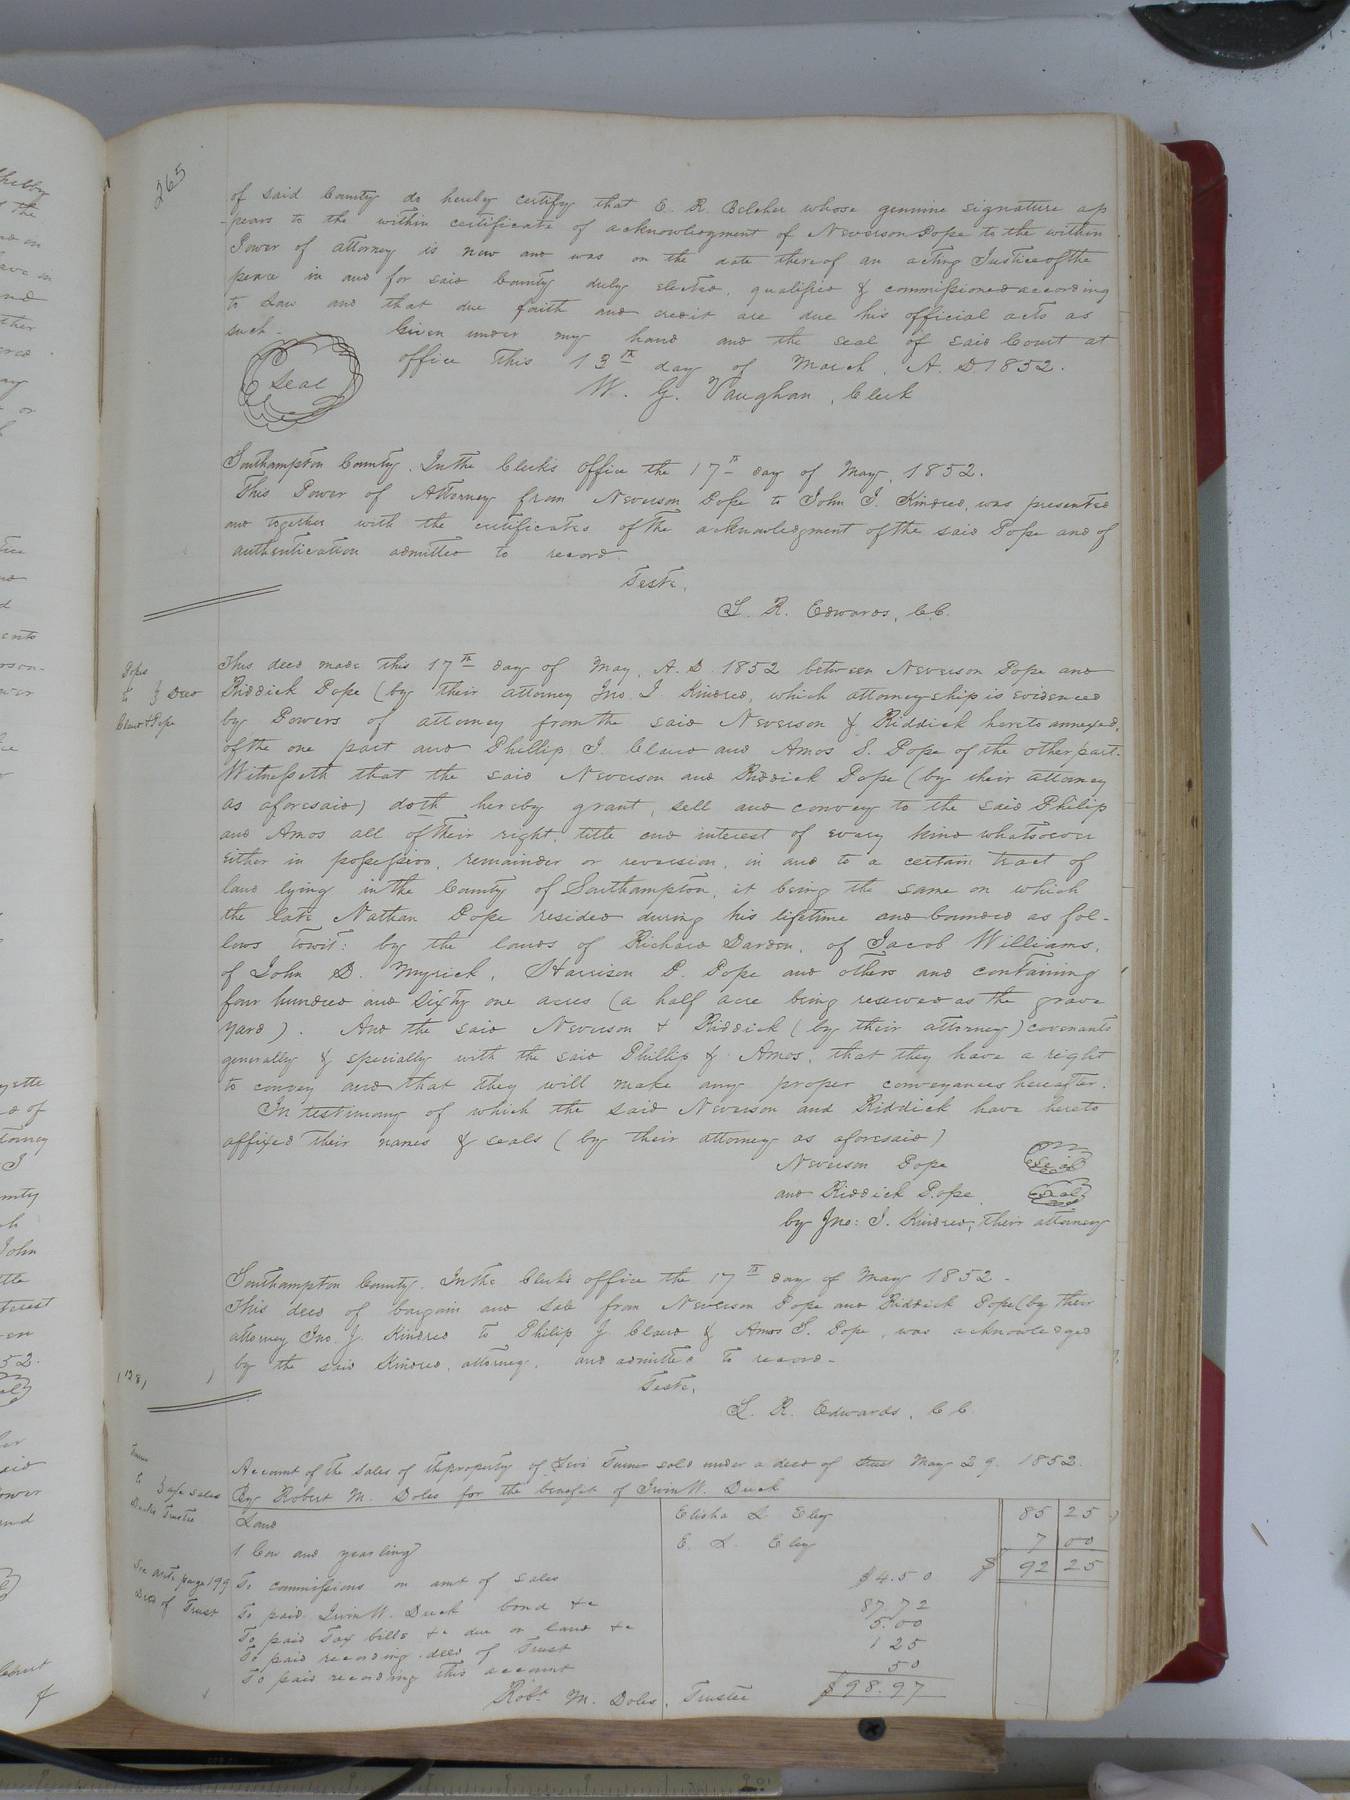 265
of said County do hereby certify that E. R. Belcher whose genuine signature ap
-pears to the within certificate of acknowledgment of Neverson Pope to the within
Power of attorney is now and was on the date thereof an acting Justice of the
peace in and for said County duly elected, qualified & commissioned according
to Law and that due faith and credit are due his official acts as
such. Given under my hand and the seal of said Court at
office this 13th day of March, A. D 1852.
Seal
W. G. Vaughan, Clerk
Southampton County. In the Clerk's office the 17th day of May, 1852.
This Power of Attorney from Neverson Pope to John J. Kindred, was presented
and together with the certificates of the acknowledgment of the said Pope and of
authentication admitted to record.
Teste.
L. R. Edwards, C.C.
Pope
to } Deed
Claud & Pope
This deed made this 17th day of May, A. D. 1852 between Neverson Pope and
Riddick Pope (by their attorney Jno. J. Kindred, which attorneyship is evidenced
by Powers of attorney from the said Neverson & Riddick hereto annexed,
of the one part and Phillip J. Claud and Amos S. Pope of the other part.
Witnesseth that the said Neverson and Riddick Pope (by their attorney
as aforesaid) doth hereby grant, sell and convey to the said Philip
and Amos all of their right, title and interest of every kind whatsoever
either in possession, remainder or reversion, in and to a certain tract of
land lying in the County of Southampton, it being the same on which
the late Nathan Pope resided during his lifetime and bounded as fol-
lows towit: by the lands of Richard Darden, of Jacob Williams,
of John D. Myrick, Harrison P. Pope and others and containing
four hundred and sixty one acres (a half acre being reserved as the grave
yard). And the said Neverson & Riddick (by their attorney) covenants
generally & specially with the said Phillip & Amos, that they have a right
to convey and that they will make any proper conveyances hereafter.
In testimony of which the said Neverson and Riddick have hereto
affixed their names & seals (by their attorney as aforesaid)
Neverson Pope Seal
and Riddick Pope Seal
by Jno: J. Kindred, their attorney
Southampton County. In the Clerk's office the 17th day of May 1852.
This deed of bargain and sale from Neverson Pope and Riddick Pope (by their
attorney Jno. J. Kindred to Philip J Claud & Amos S. Pope, was acknowledged
by the said Kindred, attorney, and admitted to record.
Teste.
L. R. Edwards, C C.
Account of the sales of the property of Levi Turner sold under a deed of trust May 29. 1852.
to } a/c sales
By Robert M. Doles for the benefit of Irvin W. Duck
Land Elisha L Eley 85 25
1 Cow and yearling E. L. Eley 7 00
$ 92 25
See ante page 199
Deed of Trust
To commissions on amt of sales $4.50
To paid Irvin W. Duck bond &c 87.72
To paid Tax bills &c due on land &c 5.00
To paid recording deed of Trust 1 25
To paid recording this account 50
$98.97
Robt M. Doles, Trustee